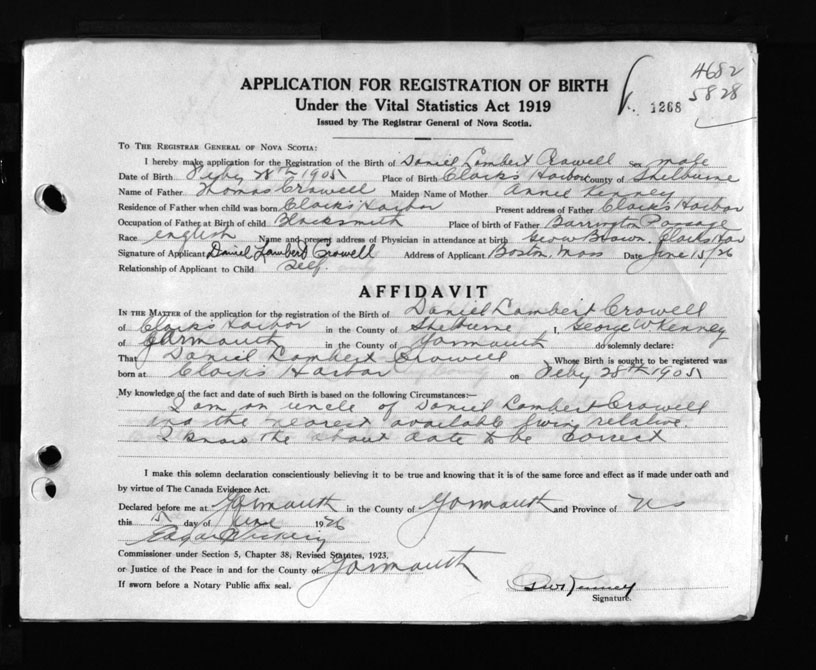 4682
5828
1268
APPLICATION FOR REGISTRATION OF BIRTH
Under the Vital Statistics Act 1919
Issued by The Registrar General of Nova Scotia.
TO THE REGISTRAR GENERAL OF NOVA SCOTIA:
I hereby make application for the Registration of the Birth of Daniel Lambert Crowell Sex male
Date of Birth Feby 28th 1905 Place of Birth Clark's Harbor County of Shelburne
Name of Father Thomas Crowell Maiden Name of Mother Annie Kenney
Residence of Father when child was born Clark's Harbor Present address of Father Clark's Harbor
Occupation of Father at Birth of child Blacksmith Place of birth of Father Barrington Passage
Race english Name and present address of Physician in attendance at birth Brown, Clarks Har
Signature of Applicant Daniel Lambert Crowell Address of Applicant Boston, Mass Date June 15/26
Relationship of Applicant to Child Self.
AFFIDAVIT
IN THE MATTER of the application for the registration of the Birth of Daniel Lambert Crowell
of Clark's Harbor in the County of Shelburne I, George W Kenney
of Yarmouth in the County of Yarmouth do solemnly declare:
That Daniel Lambert Crowell Whose Birth is sought to be registered was
born at Clark's Harbor on Feby 28th 1905
My knowledge of the fact and date of such Birth is based on the following Circumstances:—
I am an uncle of Daniel Lambert Crowell
and the nearest available living relative.
I know the about date to be correct
I make this solemn declaration conscientiously believing it to be true and knowing that it is of the same force and effect as if made under oath and
by virtue of The Canada Evidence Act.
Declared before me at Yarmouth in the County of Yarmouth and Province of NS
this 15 day of June 1926
Edgar
Commissioner under Section 5, Chapter 38, Revised Statutes, 1923,
or Justice of the Peace in and for the County of Yarmouth
If sworn before a Notary Public affix seal.
G W Kenney
Signature.